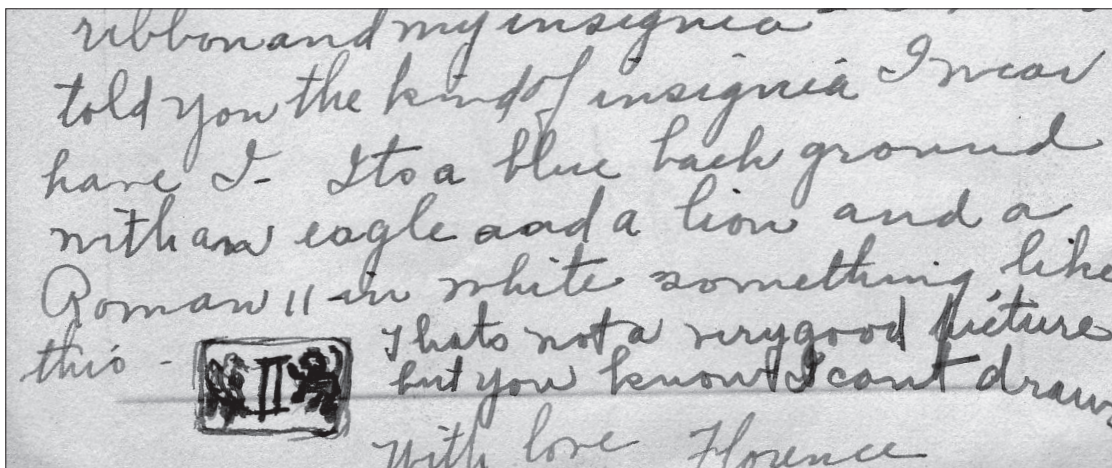 ribbon and my insignia
told you the kind of insignia I wear
have I - Its a blue back ground
with an eagle and a lion and a
Roman II in white something like
this - II Thats not a very good picture
but you know I cant draw
With love Florence